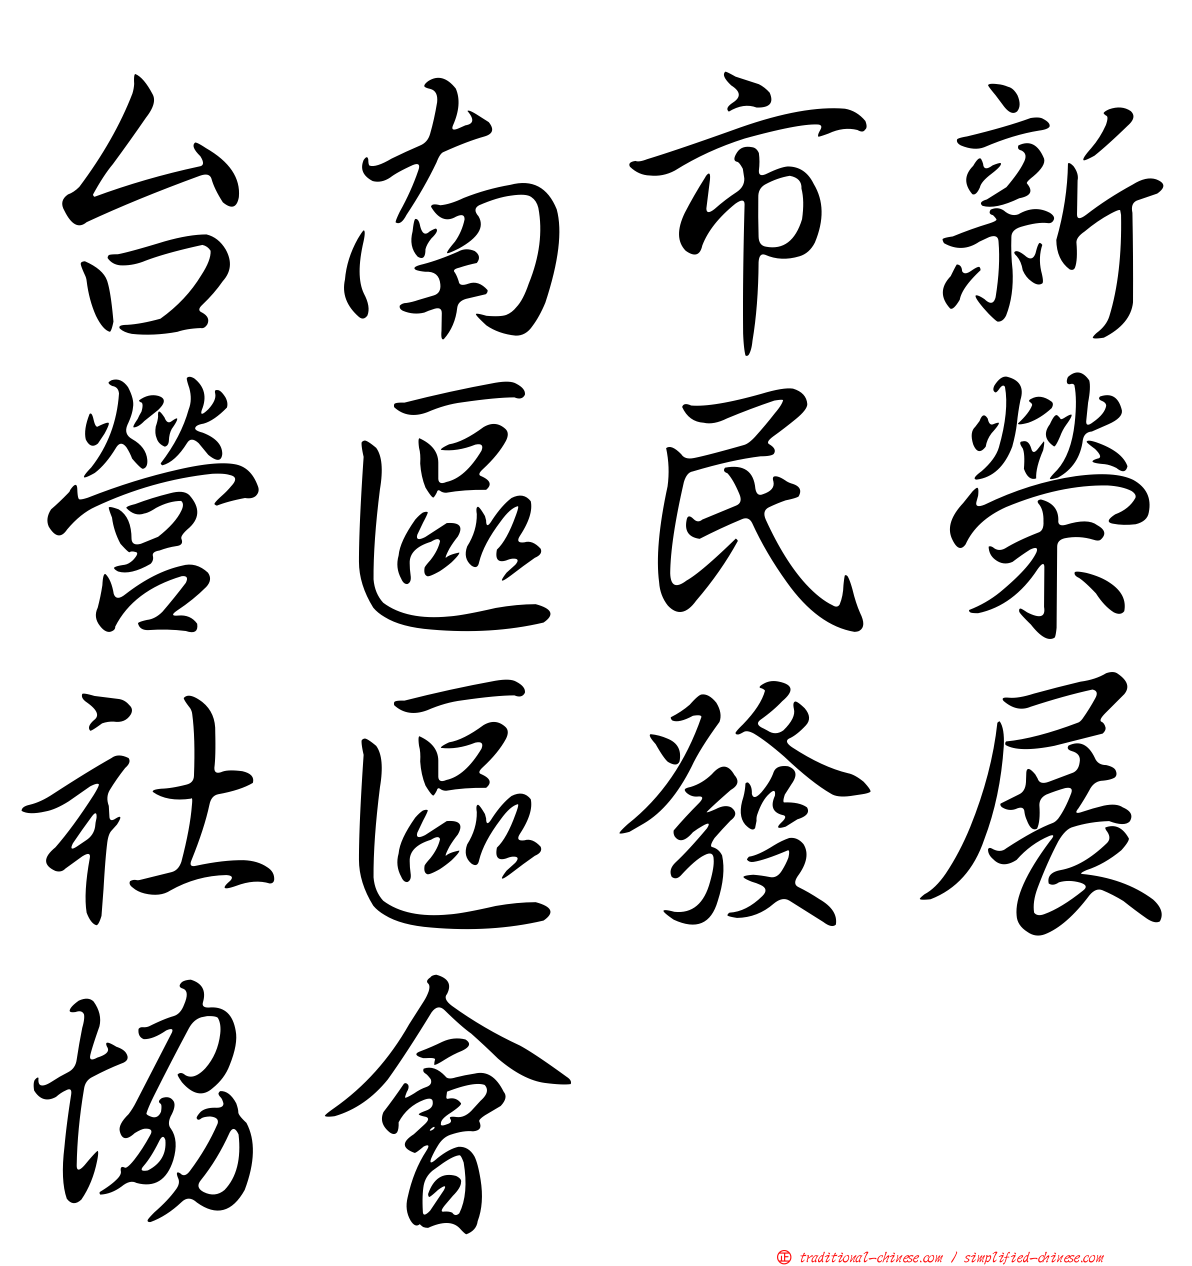 台南市新
營區民榮
社區發展
協會
正 traditional-chinese.com / simplified-chinese.com